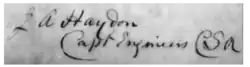 J A Haydon
Capt Engineers CSA